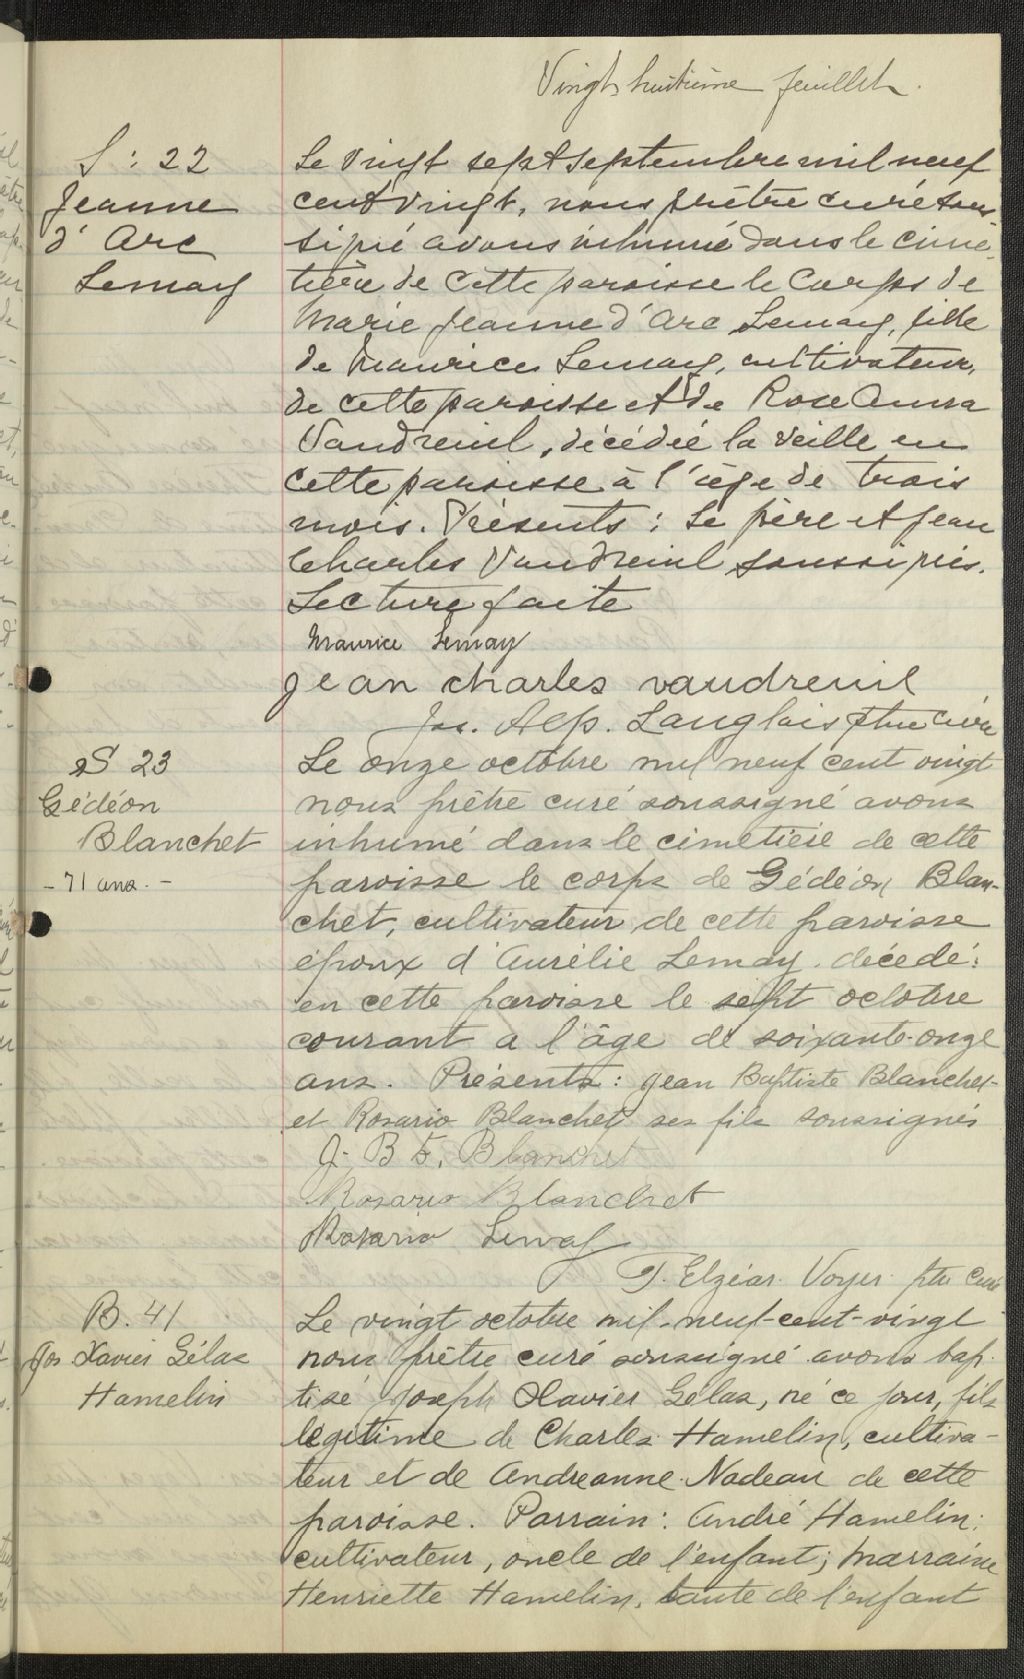 Vingt huitième feuillet.
S : 22
Jeanne
d' Arc
Lemay
Le vingt sept septembre mil neuf
cent vingt, nous prêtre curé sous
signé avons inhumé dans le cime
tière de cette paroisse le corps de
Marie Jeanne d'Arc Lemay, fille
de Maurice Lemay, cultivateur,
de cette paroisse et de Rose Anna
Vaudreuil, décédée la veille en
cette paroisse à l'âge de trois
mois. Présents : Le père et Jean
Charles Vaudreuil soussignés.
Lecture faite
Maurice Lemay
jean charles vaudreuil
Jos. Alp. Langlois Ptre Curé
S 23
Gédéon
Blanchet
- 71 ans. -
Le onze octobre mil neuf cent vingt
nous prêtre curé soussigné avons
inhumé dans le cimetière de cette
paroisse le corps de Gédéon Blan-
chet, cultivateur de cette paroisse
époux d'Aurélie Lemay. décédé
en cette paroisse le sept octobre
courant a l'âge de soixante-onze
ans. Présents : Jean Baptiste Blanchet
et Rosario Blanchet ses fils soussignés
J. B. Blanchet
Rosario Blanchet
Rosario Lemay
T. Elzéar Voyer ptre Curé
B. 41
Jos Xavier Gélas
Hamelin
Le vingt octobre mil-neuf-cent-vingt
nous prêtre curé soussigné avons bap
tisé Joseph Xavier Gélas, né ce jour, fils
légitime de Charles Hamelin, cultiva-
teur et de Andreanne Nadeau de cette
paroisse. Parrain : André Hamelin
cultivateur, oncle de l'enfant; Marraine
Henriette Hamelin, tante de l'enfant